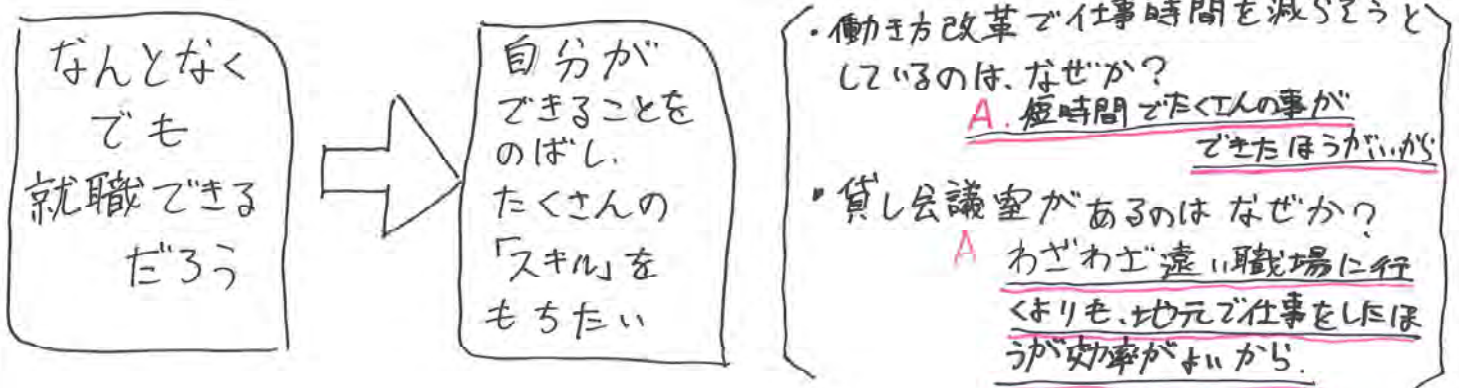 なんとなく
でも
就職できる
だろう
自分が
できることを
のばし、
たくさんの
「スキル」を
もちたい
・働き方改革で仕事時間を減らそうと
しているのは、なぜか?
A. 短時間でたくさんの事が
できたほうがいいから
・貸し会議室があるのはなぜか?
A
わざわざ遠い職場に行
くよりも、地元で仕事をしたほ
うが効率がよいから.